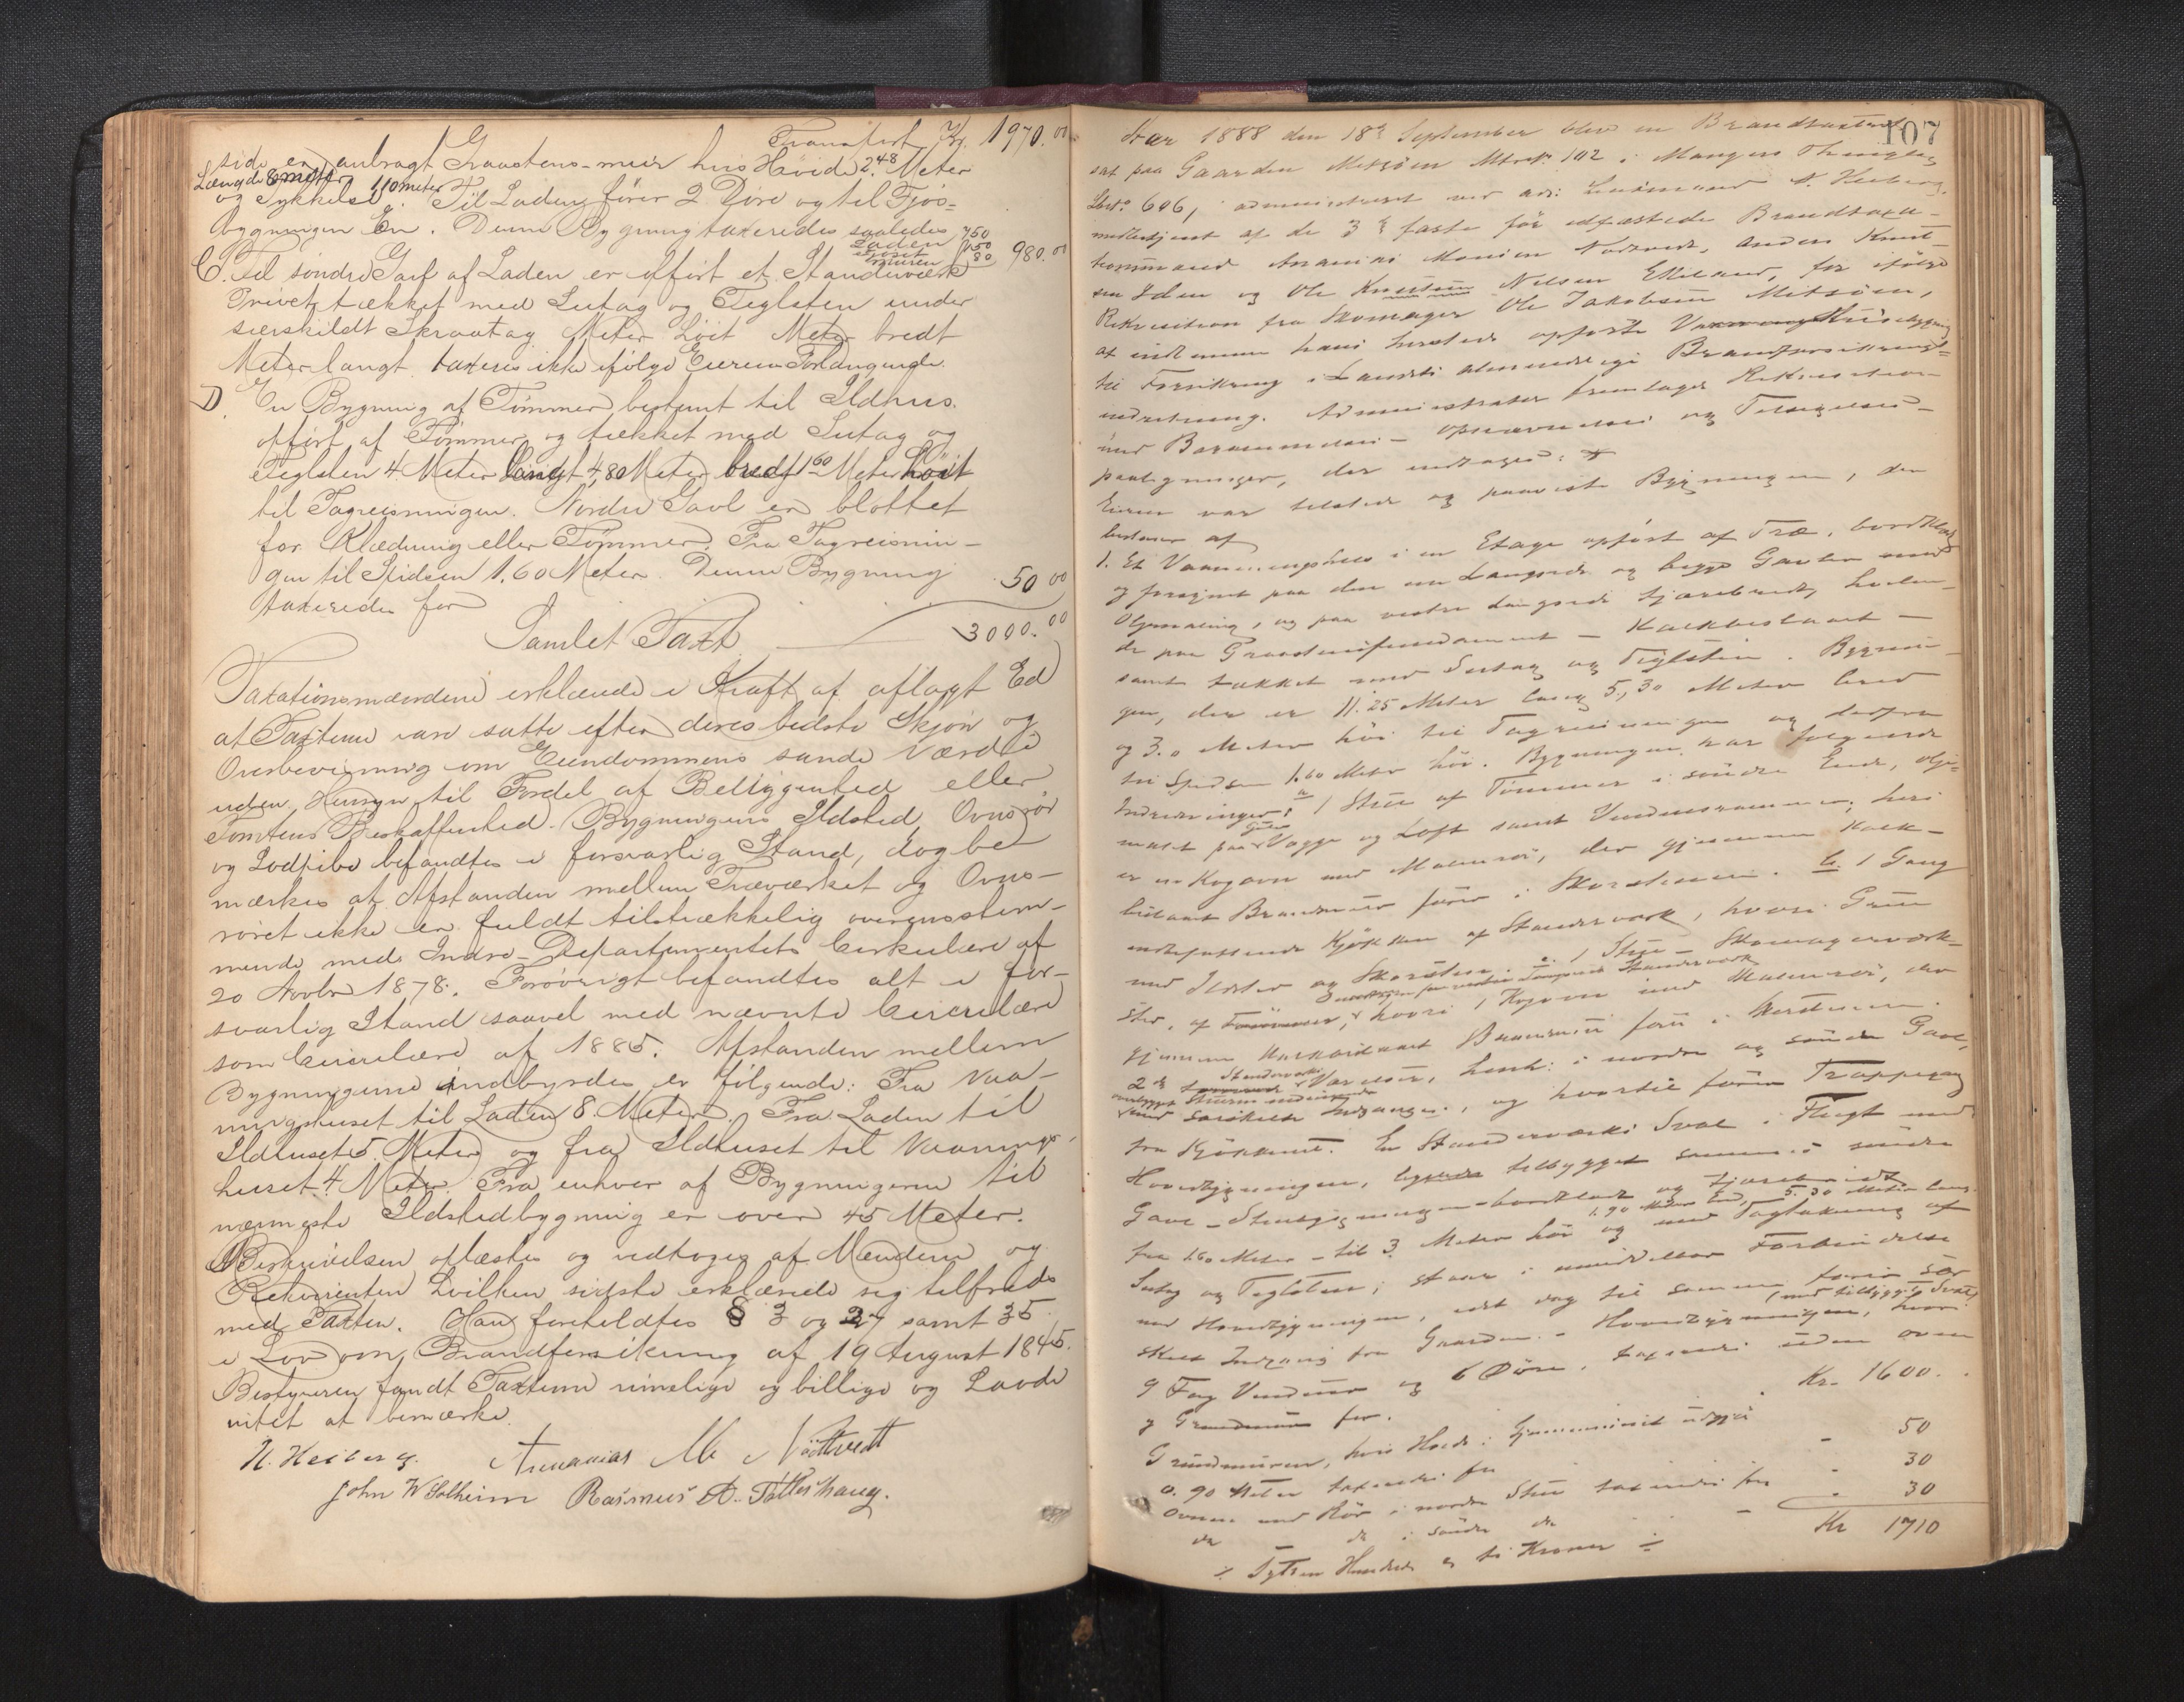 Transport Kr. 1970.00
side er anbragt Graastens-muur hvis Høide 2.48 Meter
Længde 8 meter
og Tykkelse 1.10 meter. Til Laden fører 2 Døre og til Fjøs-
bygningen En. Denne Bygning taxeredes saaledes
Laden 750
Fjøset 150
muren 80 980.00
C. Ved søndre Gavl af Laden er opført et Standerværk
Privet tækket med Sutag og Teglsten under
særskildt Skraatag Meter høit Meter bredt
Meter langt taxeres ikke ifølge Eierens Forlangende.
D. En Bygning af Tømmer bestemt til Ildhus.
opført af Tømmer og tækket med Sutag og
Teglsten 4 Meter langt 4,80 Meter bredt 1.60 Meter høit
til Tagreisningen. Nordre Gavl er blottet
for Klædning eller Tømmer. Fra Tagreisnin-
gen til Spidsen 1.60 Meter. Denne Bygning
taxeredes for 50 00
Samlet Taxt 3000.00
Taxationsmændene erklærede i Kraft af aflagt Ed
at Taxterne vare satte efter deres bedste Skjøn og
Overbevisning om Eiendommens sande Værdi
uden Hensyn til Fordel af Beliggenhed eller
Tomtens Beskaffenhed. Bygningens Ildsted, Ovnsrør
og Lodpibe befandtes i forsvarlig Stand, dog be-
mærkes at Afstanden mellem Træværket og Ovns-
røret ikke er fuldt tilstrækkelig overensstem-
mende med Indre-Departementets Cirkulære af
20 Novbr 1878. Forøvrigt befandtes alt i for-
svarlig Stand saavel med nævnte Circulære
som Circulære af 1885. Afstanden mellem
Bygningerne indbyrdes er følgende: Fra Vaa-
ningshuset til Laden 8 Meter. Fra Laden til
Ildhuset 5 Meter og fra Ildhuset til Vaanings-
huset 4 Meter. Fra enhver af Bygningerne til
nærmeste Ildstedbygning er over 45 Meter.
Beskrivelsen oplæstes og vedtoges af Mændene og
Rekvirenten hvilken sidste erklærede sig tilfreds
med Taxten. Han foreholdtes § 3 og 27 samt 35
i Lov om Brandforsikring af 19 August 1845.
Bestyreren fandt Taxterne rimelige og billige og havde
intet at bemærke.
N. Heiberg. Annanias M Nødtvedt
John W Solheim Rasmus A. Totteshaug.
107
Aar 1888 den 18de September blev en Brandtaxt
sat paa Gaarden Mitsöen Mtrek: 102 i Mangers Thinglag
Lbno 606, administreret ved Lensmand N. Heiberg,
medbetjent af de 3de faste før edfæstede Brandtaxa-
tionsmænd Ananias Nødtvedt, Anders Knut-
sen Ydem og Ole Knutsen Nelsen Elleland, for ifølge
Rekvisition fra Skomager Ole Jakobsen Mitsöen,
at indlemme hans hersteds opførte Vaaningshusbygning
til Forsikring i Landets almindelige Brandforsikrings-
indretning. Administrator fremlagde Rekvisition
med Berammelses- opnævnelses og Tilsigelses-
paategninger, der indtages: *
Eieren var tilstede og paaviste Bygningen, der
bestaar af
1. Et Vaaningshus i en Etage opført af Træ, bordklædt
og forsynet paa den ene Langside og begge Gavler med
Oljemaling, og paa vestre Langside tjærebredt, hvilen-
de paa Graastensfundament - Kalkbeslaaet -
samt tækket med Sutag og Teglsten. Bygnin-
gen, der er 11.25 Meter lang 5,30 Meter bred
og 3.0 Meter høi til Tagreisningen og derfra
til Spidsen 1.60 Meter høi. Bygningen har følgende
Indredninger: a 1 Stue af Tømmer i søndre Ende, olje-
malt paa Vægge og Loft samt Vinduesrammer, heri
er en Kogovn med Malmrør, der gjennem Kalk-
beslaaet Brandmur fører i Skorstenen. b. 1 Gang
indbefattende Kjøkken af Standerværk, hvori Grue
med Ildsted og Skorsten. c. 1 Stue - Skomagerværk-
sted, af Tømmer,
hvori 1 Kogovn med Malmrør, der
gjennem Brandmur fører i Skorstenen.
2de Standerværks Værelser, i nordre og søndre Gavl,
med særskilte Indgange, og hvortil fører Trappegang
fra Kjøkkenet. En Standerværks Sval i Flugt med
Hovedbygningen, tilbygget sammes søndre
Gavl - bordklædt og tjærebredt
1.90 Meter bred, 5.30 Meter lang
fra 1.60 Meter - til 3 Meter høi og med Tagtækning af
Sutag og Teglsten, staar i umiddelbar Forbindelse
med Hovedbygningen, med dog til samme fører sær-
skilt Indgang fra Gaarden. - Hovedbygningen, (med tilbygget Sval) hvori
9 Fag Vinduer og 6 Døre, taxeredes uden Ovne
og Grundmur for. Kr. 1600.
Grundmuren, hvis Høide i Gjennemsnit udgjør
0.90 Meter taxeredes for - 50
Ovnen med Rør i nordre Stue taxeredes for - 30
do do i søndre do - 30
Kr 1710
÷ Sytten Hundrede og ti Kroner ÷